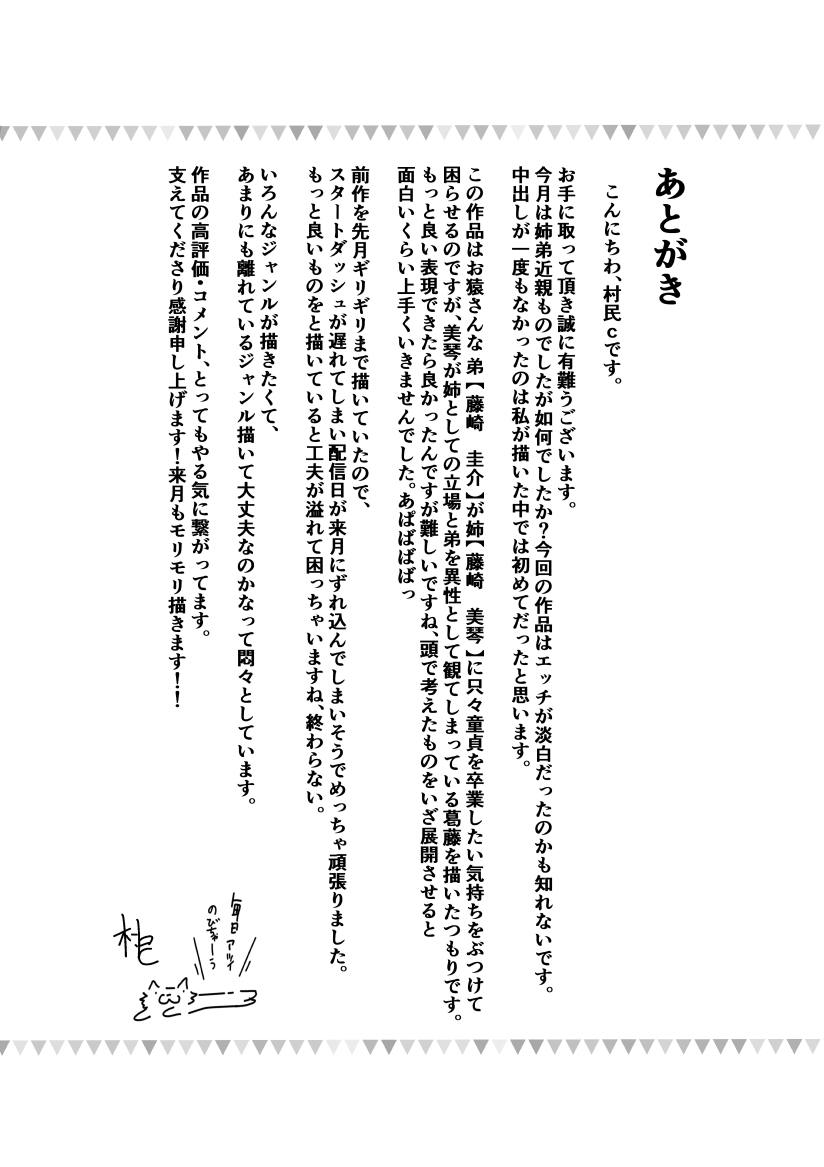 あとがき
こんにちわ、村民cです。
お手に取って頂き誠に有難うございます。
今月は姉弟近親ものでしたが如何でしたか？今回の作品はエッチが淡白だったのかも知れないです。
中出しが一度もなかったのは私が描いた中では初めてだったと思います。
この作品はお猿さんな弟【藤崎　圭介】が姉【藤崎　美琴】に只々童貞を卒業したい気持ちをぶつけて
困らせるのですが、美琴が姉としての立場と弟を異性として観てしまっている葛藤を描いたつもりです。
もっと良い表現できたら良かったんですが難しいですね、頭で考えたものをいざ展開させると
面白いくらい上手くいきませんでした。あぱばばばっ
前作を先月ギリギリまで描いていたので、
スタートダッシュが遅れてしまい配信日が来月にずれ込んでしまいそうでめっちゃ頑張りました。
もっと良いものをと描いていると工夫が溢れて困っちゃいますね、終わらない。
いろんなジャンルが描きたくて、
あまりにも離れているジャンル描いて大丈夫なのかなって悶々としています。
作品の高評価・コメント、とってもやる気に繋がってます。
支えてくださり感謝申し上げます！来月もモリモリ描きます！！
毎日アツイ
のびちゃーう